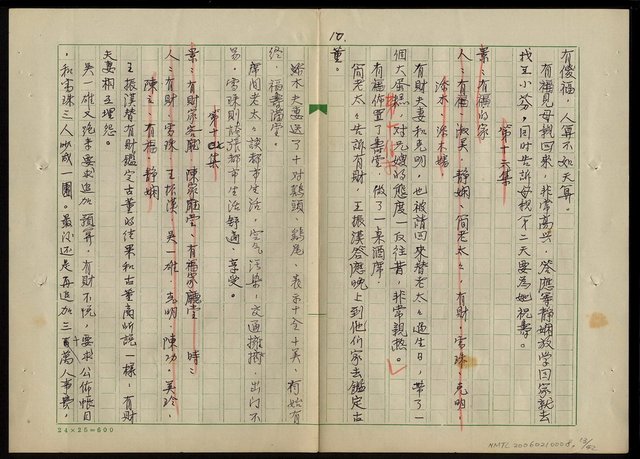 10.
有傻福，人算不如天算。
有福見母親回來，非常高興，答應等靜嫻放学回家就去
找王小芬，同时告訴母親明天要为她祝壽。
第十六集
景：有福的家
人：有福、淑美、靜嫻、簡老太太、有財、雪珠、克明、
添水、添水嬸
有財夫妻和克明，也被請回來替老太太過生日，帶了一
個大蛋糕，对兄嫂的態度一反往昔，非常親熱。
有福佈置了壽堂，做了一桌酒席。
簡老太太告訴有財，王振漢答應晚上到他们家去鑑定古
董。
添水夫妻送了十对鷄頭、鷄尾，表示十全十美，有始有
終，福壽滿堂。
席间老太太談都市生活，空气污染，交通擁擠，出门不
易，雪珠則誇讚都市生活舒適、享受。
第十七集
景：有財家客廳、陳家廳堂、有福家廳堂　時：
人：有財、雪珠、王振漢、吳一雄、克明、陳功、美玲
陳立、有福、靜嫻
王振漢替有財鑑定古董的结果和古董商所說一樣，有財
夫妻相互埋怨。
吳一雄又跑來要求追加預算，有財不悅，要求公佈帳目
，和雪珠三人吵成一團。最後还是再追加三十萬人事費，
24×25=600
NMTL20060210008, 13/162